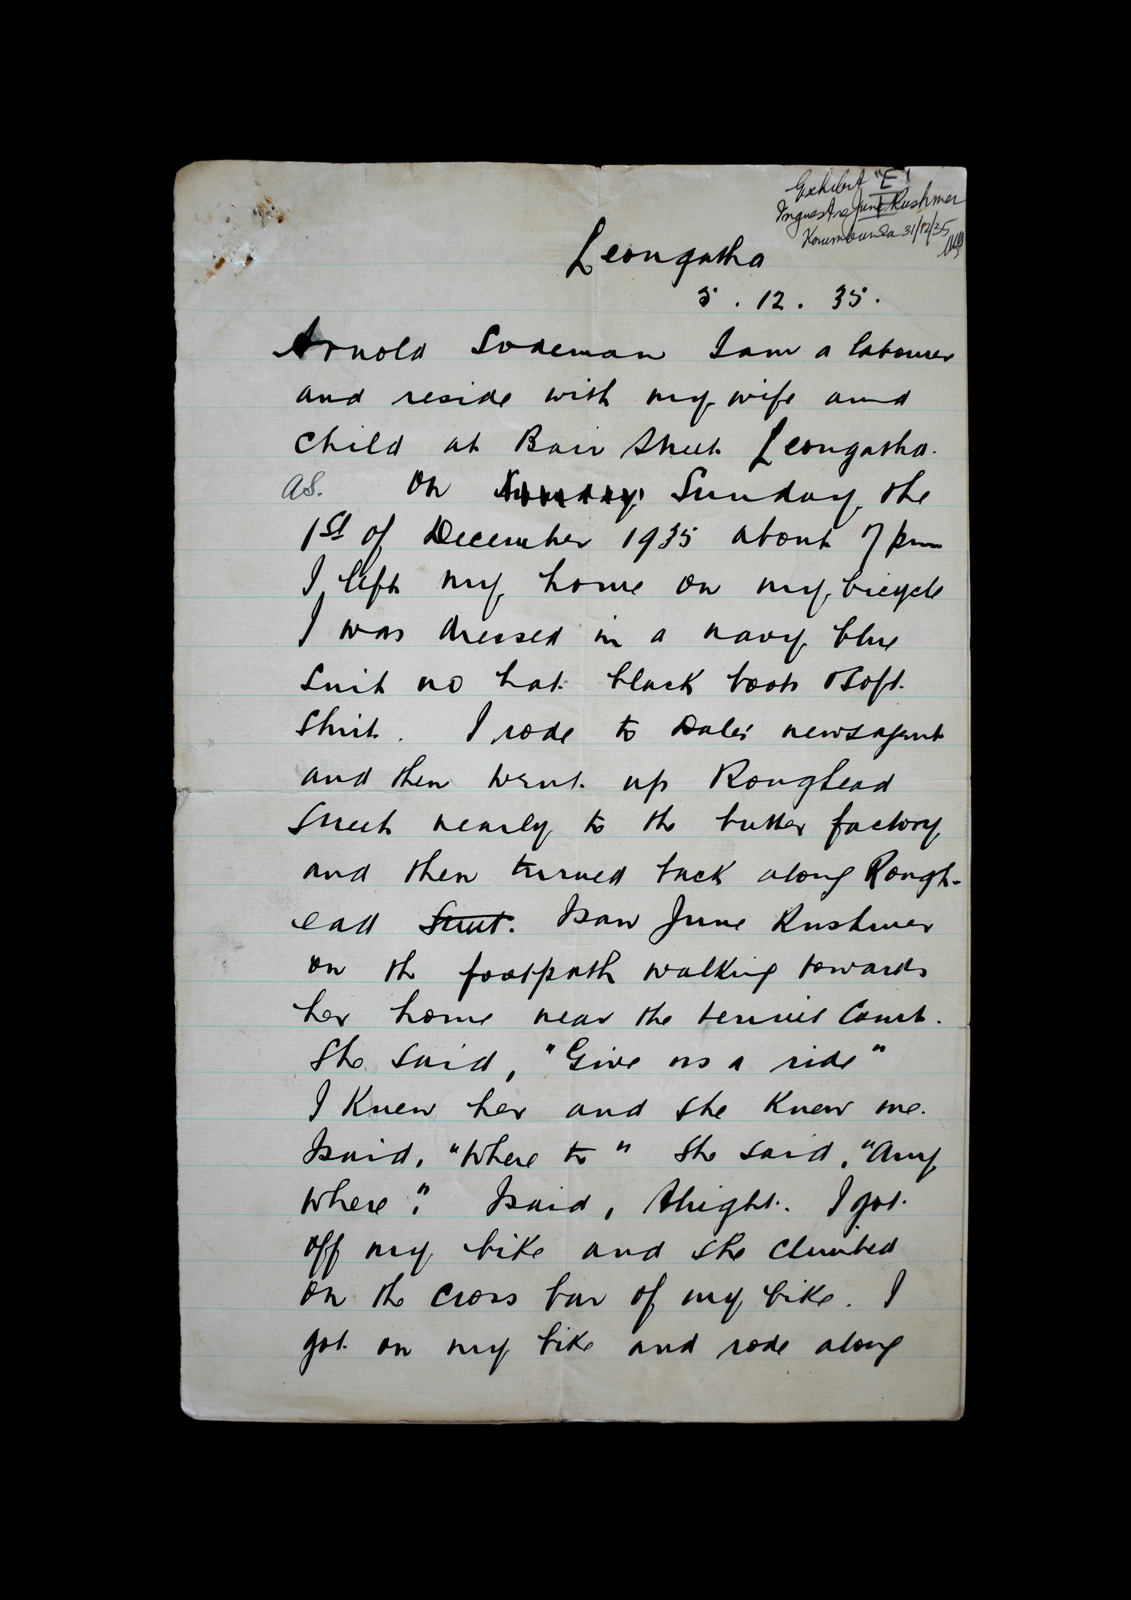 Exhibit "E"
Inquest re June Rushmer
Korumburra 31/12/35
Leongatha
5 . 12 . 35 .
Arnold Sodeman I am a labourer
and reside with my wife and
child at Bair Street Leongatha.
AS. On Sunday Sunday the
1st of December 1935 about 7 pm
I left my home on my bicycle
I was dressed in a navy blue
suit no hat black boots & soft
shirt . I rode to Dales newsagent
and then went up Roughead
Street nearly to the butter factory
and then turned back along Rough-
ead Street. I saw June Rushmer
on the footpath walking towards
her home near the tennis Court.
She said, "Give us a ride"
I knew her and she knew me.
I said, "Where to" She said, "Any
where". I said, Alright. I got
off my bike and she climbed
on the cross bar of my bike. I
got on my bike and rode along